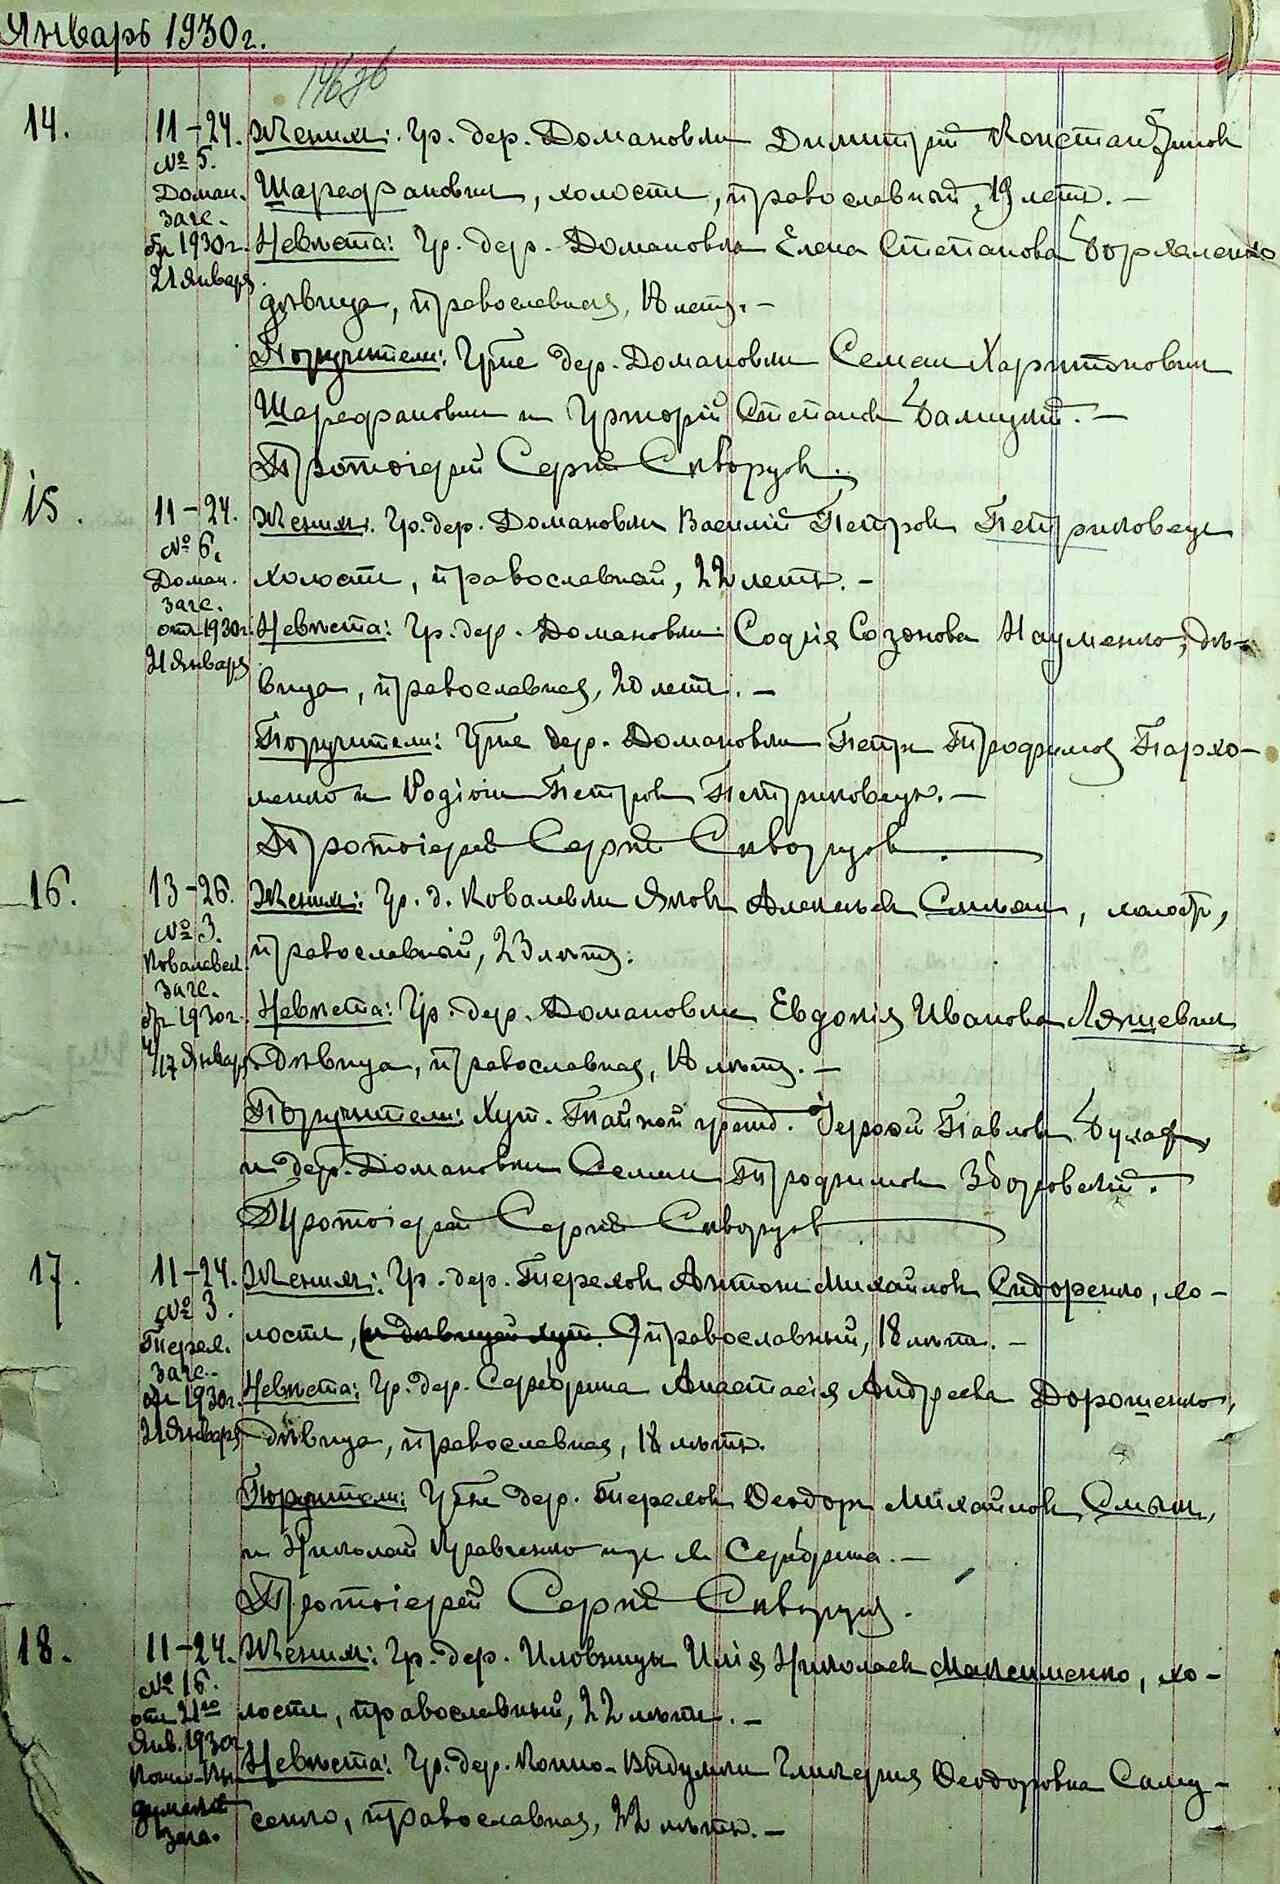 Январь 1930 г.
14.
11–24.
№ 5.
Доман.
загс.
от 1930 г.
21 Января
Жених: Гр. дер. Домановки Димитрій Константинов
Шарафанович, холост, православный, 19 лет. –
Невѣста: Гр. дер. Домановка Елена Степанова
дѣвица, православная, 18 лет. –
Поручители: Гр-не дер. Домановки Семен Харитонович
Шарафанович и Григорій Степанов
Протоіерей Сергій Скворцов.
15.
11–24.
№ 6.
Доман.
загс.
от 1930 г.
21 Января
Жених: Гр. дер. Домановки Василій Петров Петриковец
холост, православный, 22 лет. –
Невѣста: Гр. дер. Домановки Софія Созонова Науменко, дѣ-
вица, православная, 20 лет. –
Поручители: Гр-не дер. Домановки Петр Трофимов Пархо-
менко и Родіон Петров Петриковец. –
Протоіерей Сергій Скворцов
16.
13–26.
№ 3.
Ковалевск.
загс.
от 1930 г.
4/17 Января
Жених: Гр. д. Ковалевки Яков Алексеев холост,
православный, 23 лѣт.
Невѣста: Гр. дер. Домановки Евдокія Иванова Ляшевич
Дѣвица, православная, 18 лѣт. –
Поручители: Хут. гражд. Павлов
и дер. Домановки Семен Трофимов
Протоіерей Сергій Скворцов
17.
11–24.
№ 3.
загс.
от 1930 г.
21 Января
Жених: Гр. дер. Антон Михайлов Сидоренко, хо-
лост, православный, 18 лѣт. –
Невѣста: Гр. дер. Анастасія Андреева Дорошенко,
дѣвица, православная, 18 лѣт.
Поручители: Гр-не дер. Ѳеодор Михайлов
и Николай Кравченко из
Протоіерей Сергій Скворцов.
18.
11–24.
№ 16.
от 21го
Янв. 1930 г.
загс.
Жених: Гр. дер. Иловницы Илія Николаев Максименко, хо-
лост, православный, 22 лѣт. –
Невѣста: Гр. дер. Гликерия Ѳеодоровна Саму-
сенко, православная, 22 лѣт. –